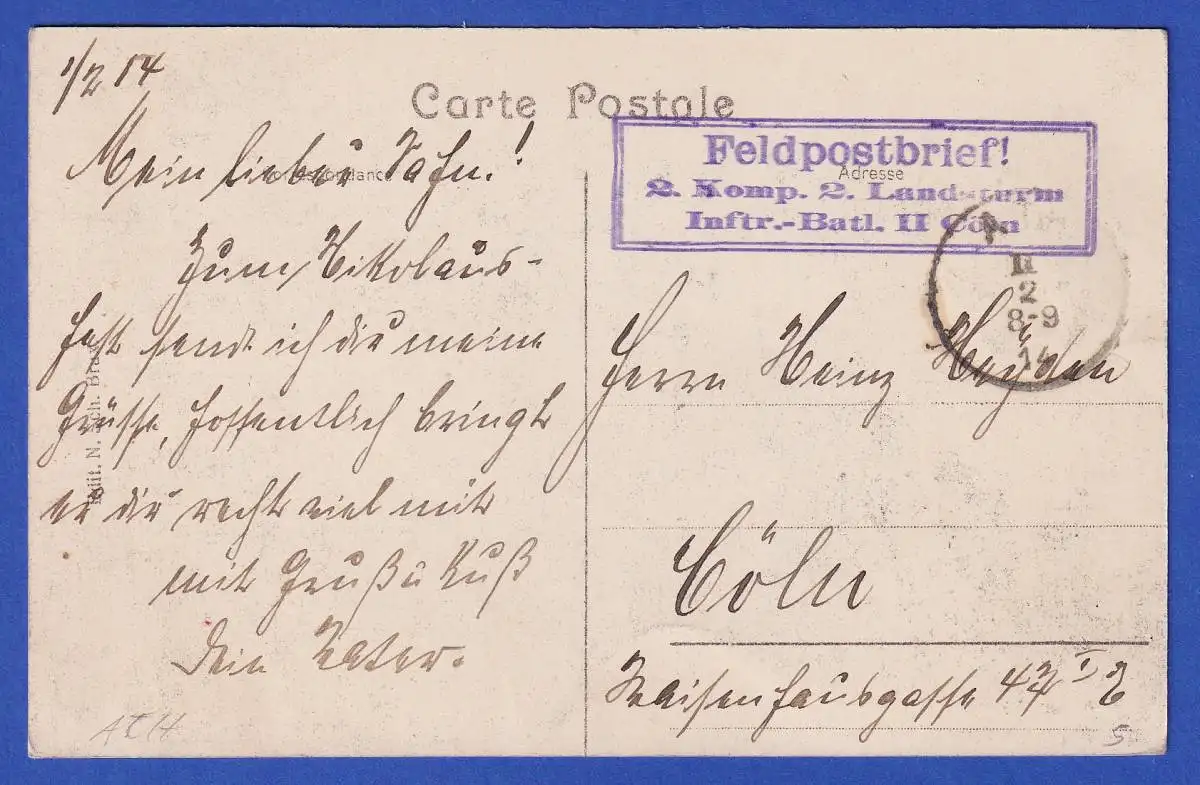 1/2 14
Carte Postale
Mein lieber Sohn!
Zum Nikolaus-
fest sende ich dir meine
Grüsse, hoffentlich bringt
er dir recht viel mit
mit Gruß u Kuß
Dein Vater.
Feldpostbrief!
Adresse
2. Komp. 2. Landsturm
Inftr.-Batl. II Cöln
2
8-9
14
Herrn Heinz Heyden
Cöln
Waisenhausgasse
5